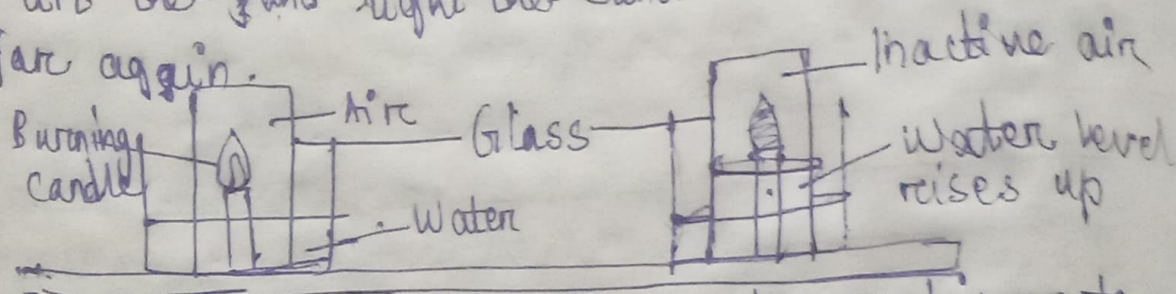 again.
Burning
candle
Air
Glass
Water
Inactive air
Water level
reises up